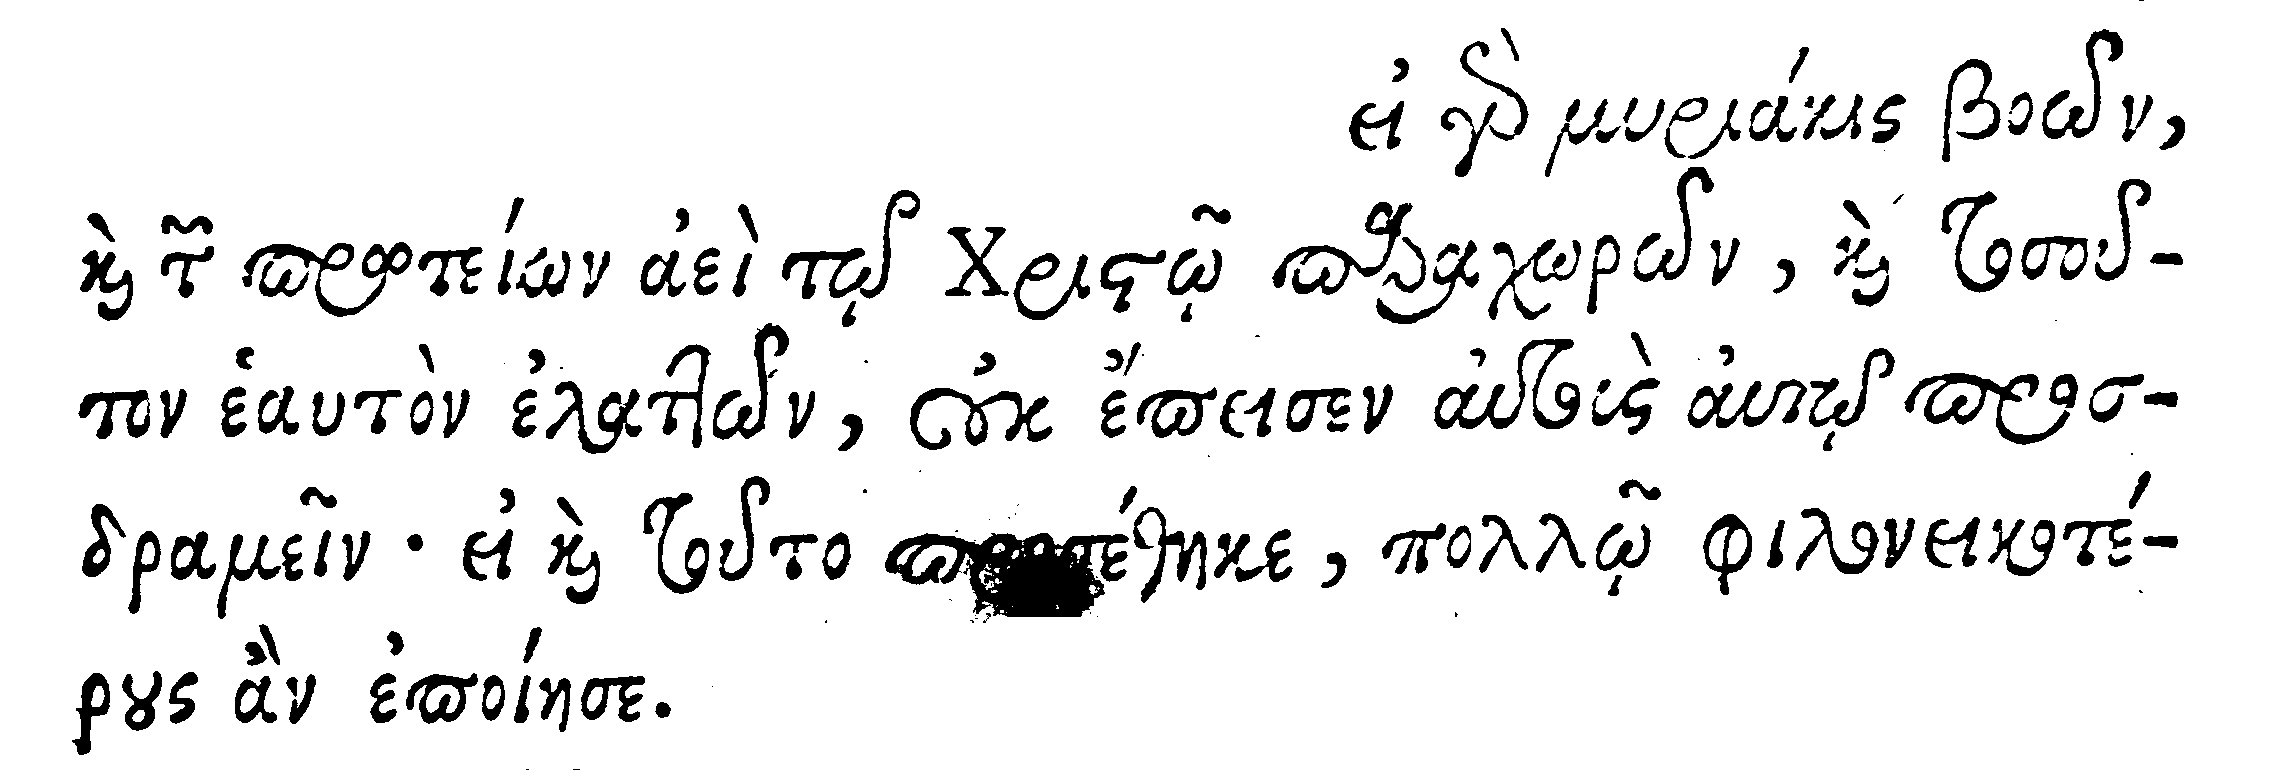 εἰ γὰρ μυριάκις βοῶν,
καὶ τῶν πρωτείων ἀεὶ τῷ Χριστῷ παραχωρῶν, καὶ τοσοῦ-
τον ἑαυτὸν ἐλαττῶν, οὐκ ἔπεισεν αὐτοὺς αὐτῷ προσ-
δραμεῖν· εἰ καὶ τοῦτο προσέθηκε, πολλῷ φιλονεικοτέ-
ρους ἂν ἐποίησε.